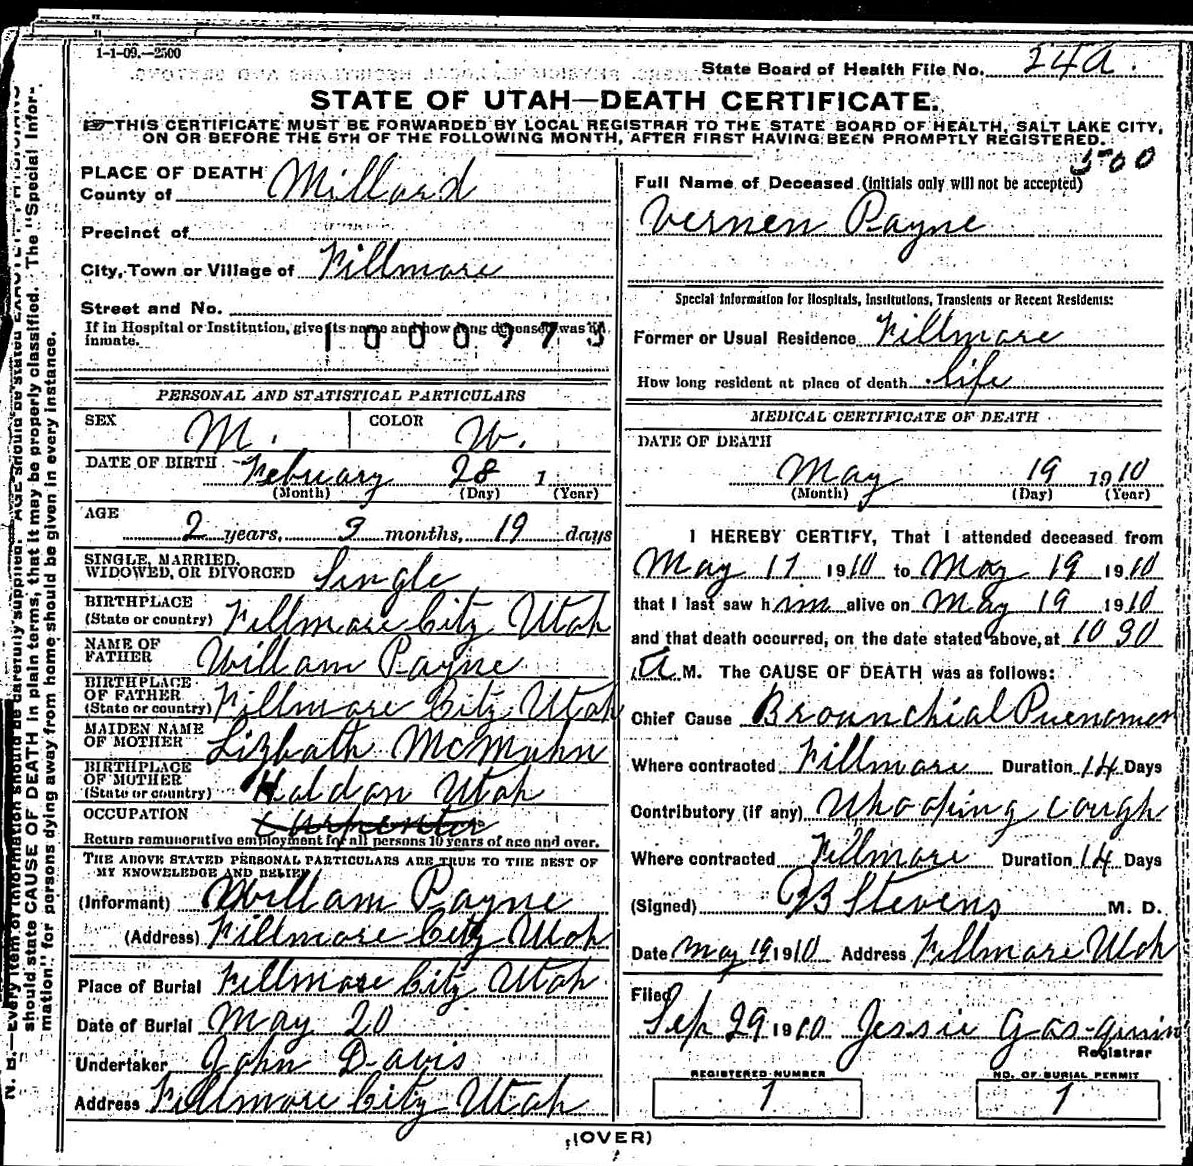 1-1-09.—2500
State Board of Health File No. 24a.
STATE OF UTAH—DEATH CERTIFICATE.
☞THIS CERTIFICATE MUST BE FORWARDED BY LOCAL REGISTRAR TO THE STATE BOARD OF HEALTH, SALT LAKE CITY,
ON OR BEFORE THE 5TH OF THE FOLLOWING MONTH, AFTER FIRST HAVING BEEN PROMPTLY REGISTERED.
500
PLACE OF DEATH
County of Millard
Precinct of
City, Town or Village of Fillmore
Street and No.
If in Hospital or Institution, give its name and how long deceased was an
inmate.
1000975
PERSONAL AND STATISTICAL PARTICULARS
SEX M. COLOR W.
DATE OF BIRTH February 28 1
(Month) (Day) (Year)
AGE
2 years, 3 months, 19 days
SINGLE, MARRIED,
WIDOWED, OR DIVORCED Single
BIRTHPLACE
(State or country) Fillmore City Utah
NAME OF
FATHER Willam Payne
BIRTHPLACE
OF FATHER
(State or country) Fillmore City Utah
MAIDEN NAME
OF MOTHER Lizbath McMahn
BIRTHPLACE
OF MOTHER
(State or country) Holdon Utah
OCCUPATION Carpenter
Return remunerative employment for all persons 10 years of age and over.
THE ABOVE STATED PERSONAL PARTICULARS ARE TRUE TO THE BEST OF
MY KNOWLEDGE AND BELIEF
(Informant) Willam Payne
(Address) Fillmore City Utah
Place of Burial Fillmore City Utah
Date of Burial May 20
Undertaker John Davis
Address Fillmore City Utah
Full Name of Deceased (initials only will not be accepted)
Vernen Payne
Special Information for Hospitals, Institutions, Transients or Recent Residents:
Former or Usual Residence Fillmore
How long resident at place of death life
MEDICAL CERTIFICATE OF DEATH
DATE OF DEATH
May 19 1910
(Month) (Day) (Year)
I HEREBY CERTIFY, That I attended deceased from
May 17 1910 to May 19 1910
that I last saw him alive on May 19 1910
and that death occurred, on the date stated above, at 10 30
A M. The CAUSE OF DEATH was as follows:
Chief Cause Brounchial Puenomon
Where contracted Fillmore Duration 14 Days
Contributory (if any) Whooping Cough
Where contracted Fillmore Duration 14 Days
(Signed) Stevens M. D.
Date May 19 1910 Address Fillmore Utah
Filed
Sep 29 1910 Jessie
Registrar
REGISTERED NUMBER
1
NO. OF BURIAL PERMIT
1
(OVER)
N. B.—Every item of information should be carefully supplied. AGE should be stated EXACTLY. PHYSICIANS
should state CAUSE OF DEATH in plain terms, that it may be properly classified. The "Special Infor-
mation" for persons dying away from home should be given in every instance.